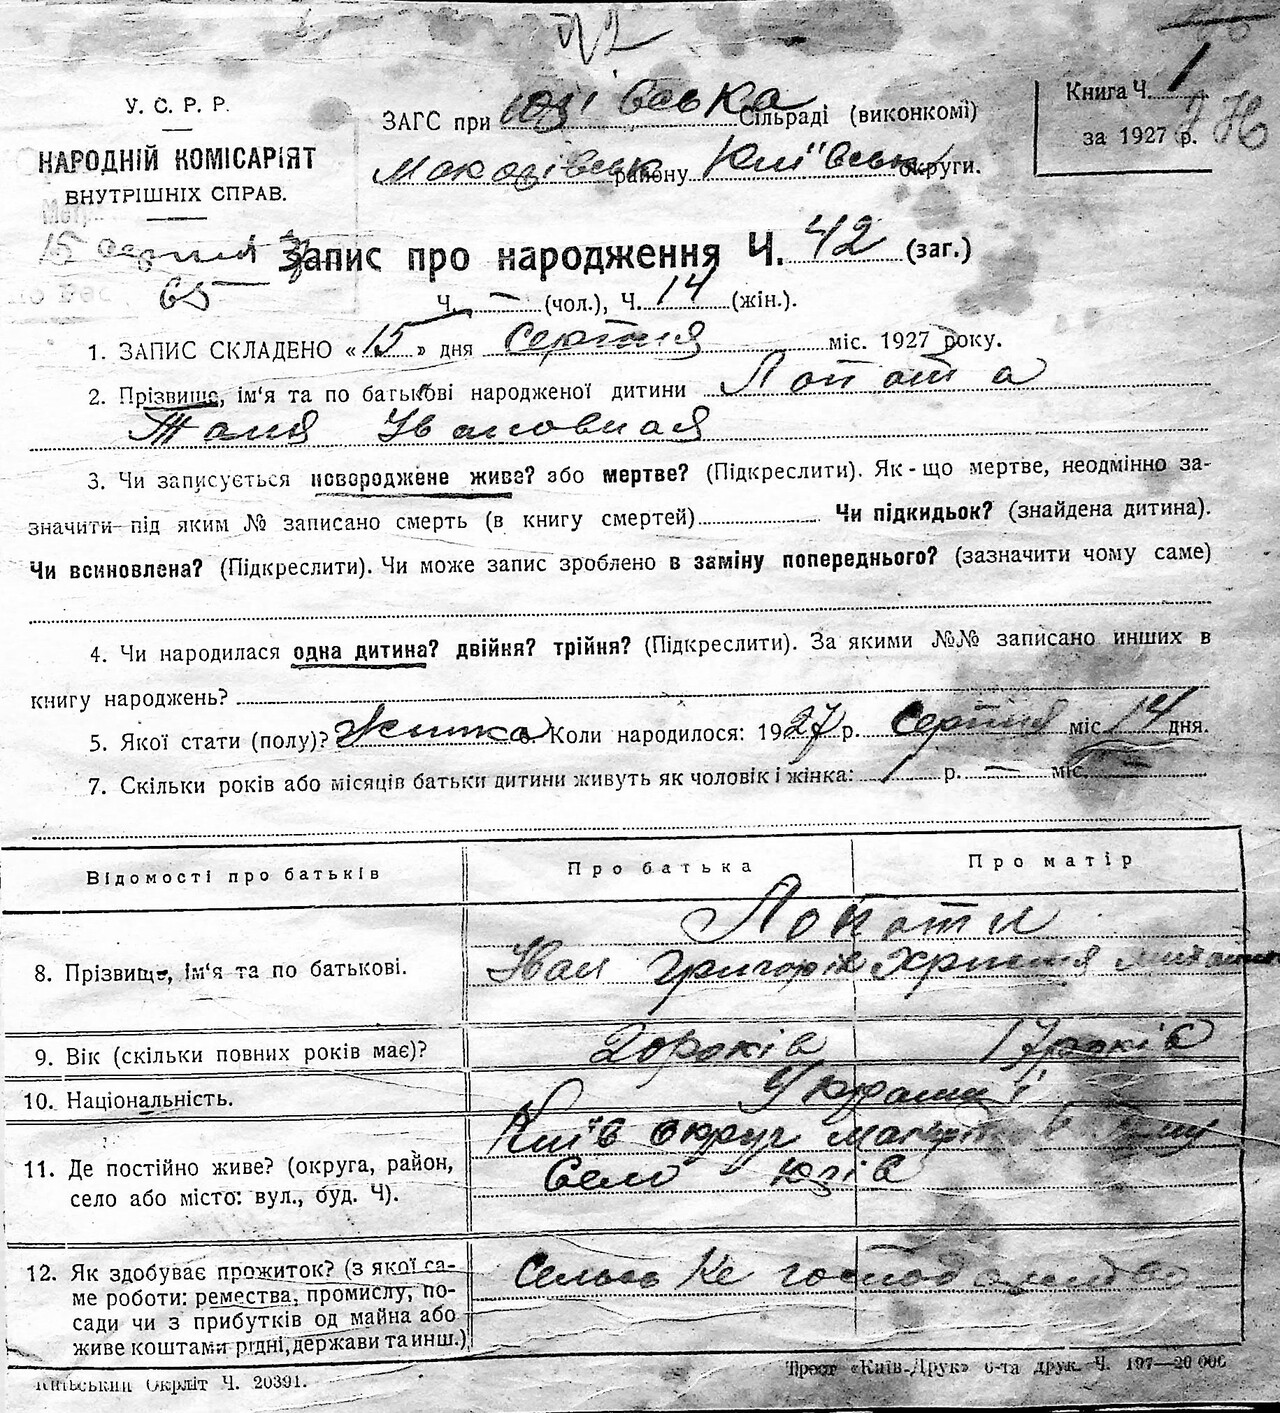 У. С. Р. Р.
НАРОДНІЙ КОМІСАРІЯТ
ВНУТРІШНІХ СПРАВ.
ЗАГС при Юзівська Сільраді (виконкомі)
Макарівськ району Київськ округи.
Книга Ч. 1
за 1927 р.
15 серпня
65
Запис про народження Ч. 42 (заг.)
Ч. — (чол.), Ч. 14 (жін.).
1. ЗАПИС СКЛАДЕНО « 15 » дня серпня міс. 1927 року.
2. Прізвище, ім'я та по батькові народженої дитини Лопота
Таня Івановная
3. Чи записується новороджене живе? або мертве? (Підкреслити). Як-що мертве, неодмінно за-
значити під яким № записано смерть (в книгу смертей) Чи підкидьок? (знайдена дитина).
Чи всиновлена? (Підкреслити). Чи може запис зроблено в заміну попереднього? (зазначити чому саме)
4. Чи народилася одна дитина? двійня? трійня? (Підкреслити). За якими №№ записано инших в
книгу народжень?
5. Якої стати (полу)? Жинка 6. Коли народилося: 1927 р. Серпня міс. 14 дня.
7. Скільки років або місяців батьки дитини живуть як чоловік і жінка: 1 р. — міс. —
Відомості про батьків Про батька Про матір
Лопоти
8. Прізвище, ім'я та по батькові. Іван Григорів Христя
9. Вік (скільки повних років має)? 20 років 17 років
10. Національність. Украінці
Київ округ
11. Де постійно живе? (округа, район,
село або місто: вул., буд. Ч). село Юзів
12. Як здобуває прожиток? (з якої са-
ме роботи: ремества, промислу, по-
сади чи з прибутків од майна або
живе коштами рідні, держави та инш.)
Сельське господарство
Київський Окрліт Ч. 20391.
Трест «Київ-Друк» 6-та друк. Ч. 197—20 000